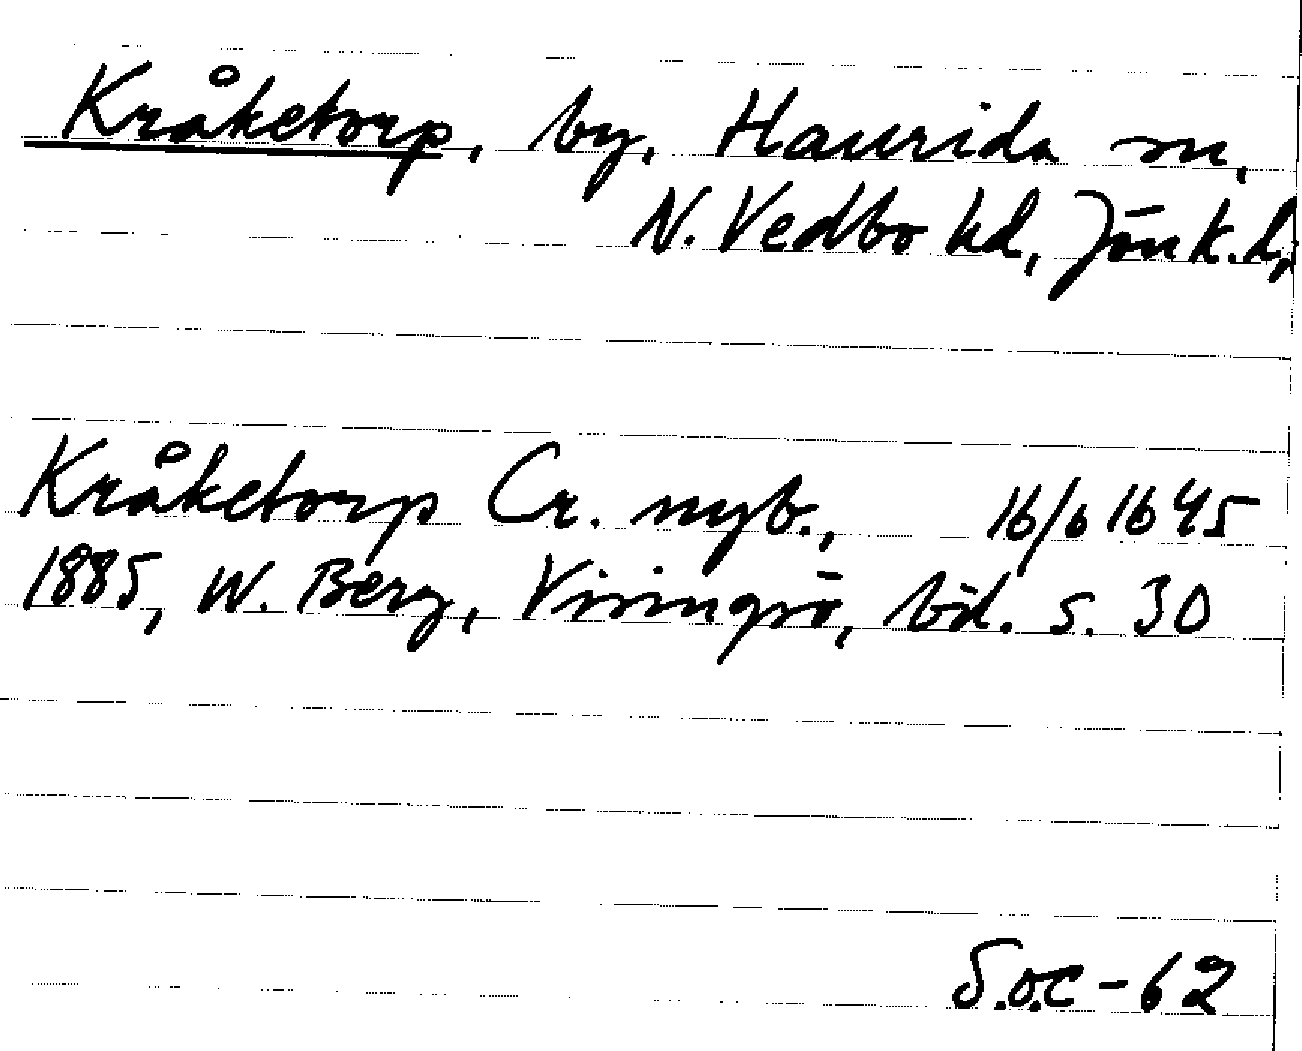 Kråketorp, by, Haurida sn,
N. Vedbo hd, Jönk. l,
Kråketorp Cr. nyb., 16/6 1645
1885, W. Berg, Visingsö, bd. s. 30
S.o.c-62